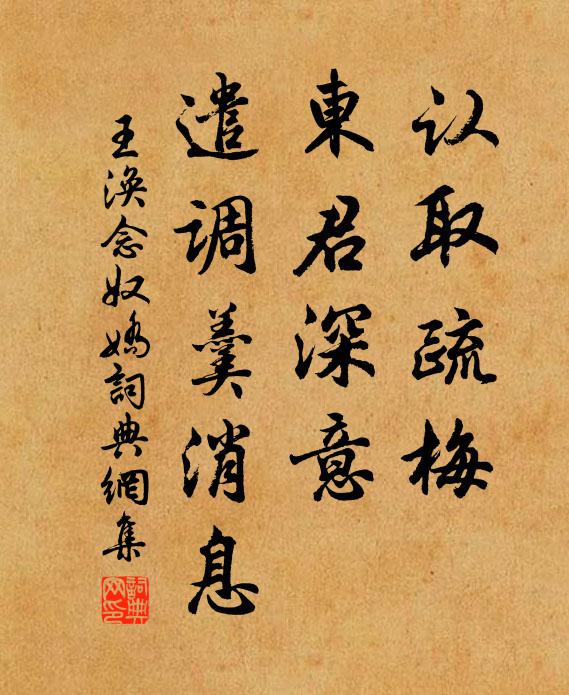 认取疏梅
東君深意
遣调羹消息
王渙念奴嬌詞典網集
詞典網印